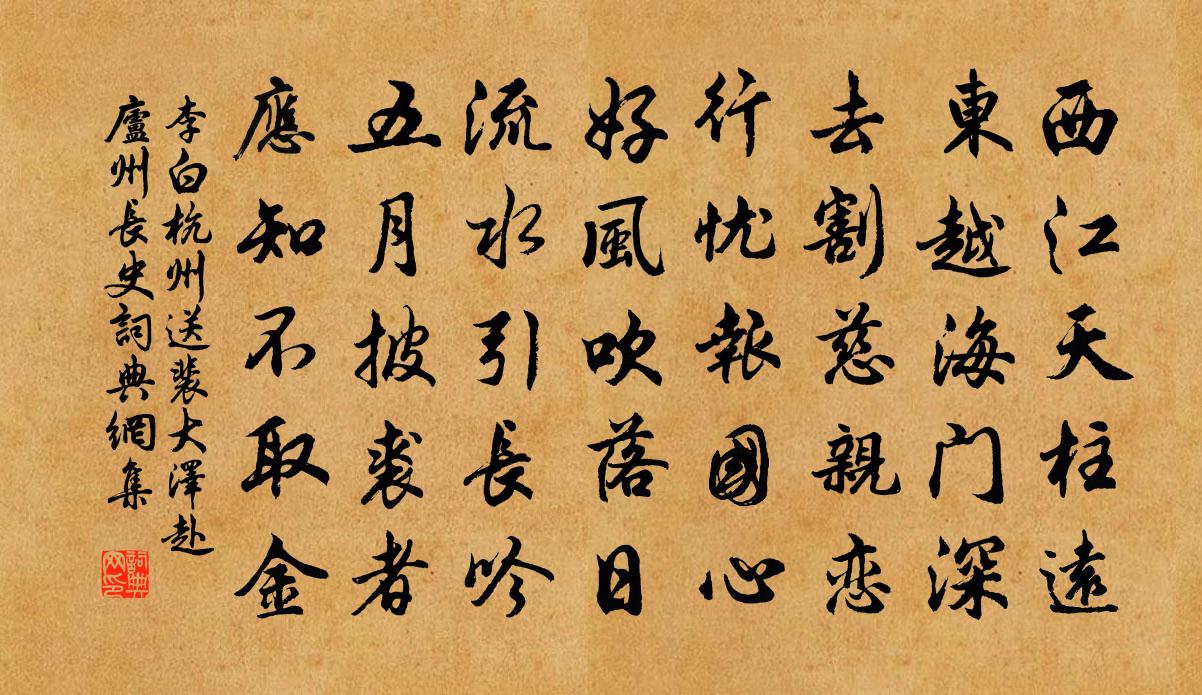 西江天柱遠
東越海门深
去割慈親恋
行忧報國心
好風吹落日
流水引長吟
五月披裘者
應知不取金
李白杭州送裴大澤赴
廬州長史詞典網集
詞典网印